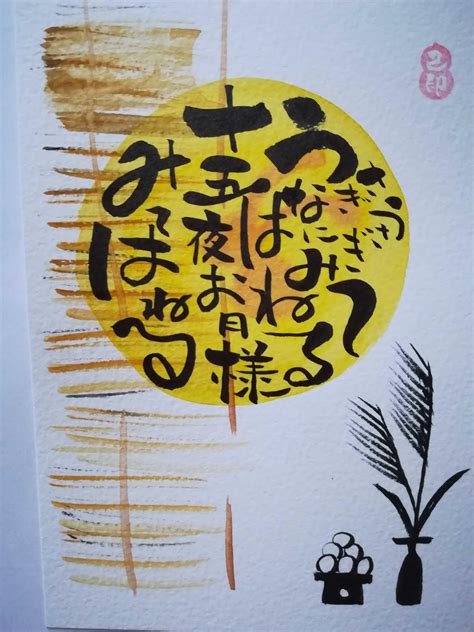 うさぎうさぎ
なにみて
はねる
十五夜お月様
みてはねる